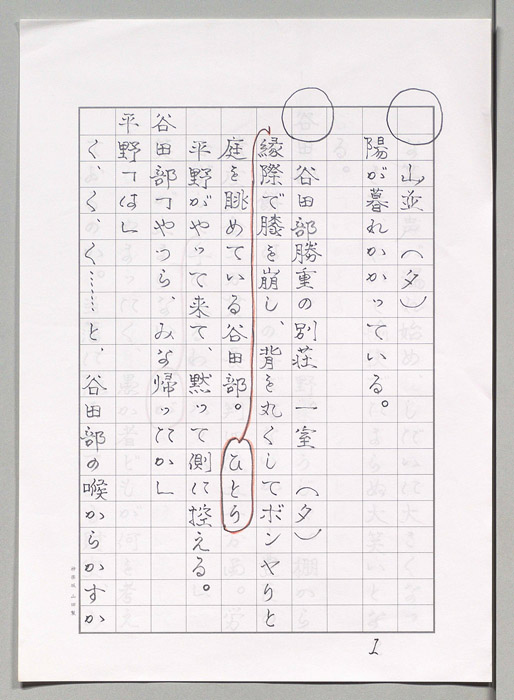 山並（夕）
陽が暮れかかっている。
谷田部勝重の別荘一室（夕）
縁際で膝を崩し、背を丸くしてボンヤリと
庭を眺めている谷田部。ひとり
平野がやって来て、黙って側に控える。
谷田部「やつら、みな帰ったか」
平野「はい」
く、く、く……と、谷田部の喉からかすか
1